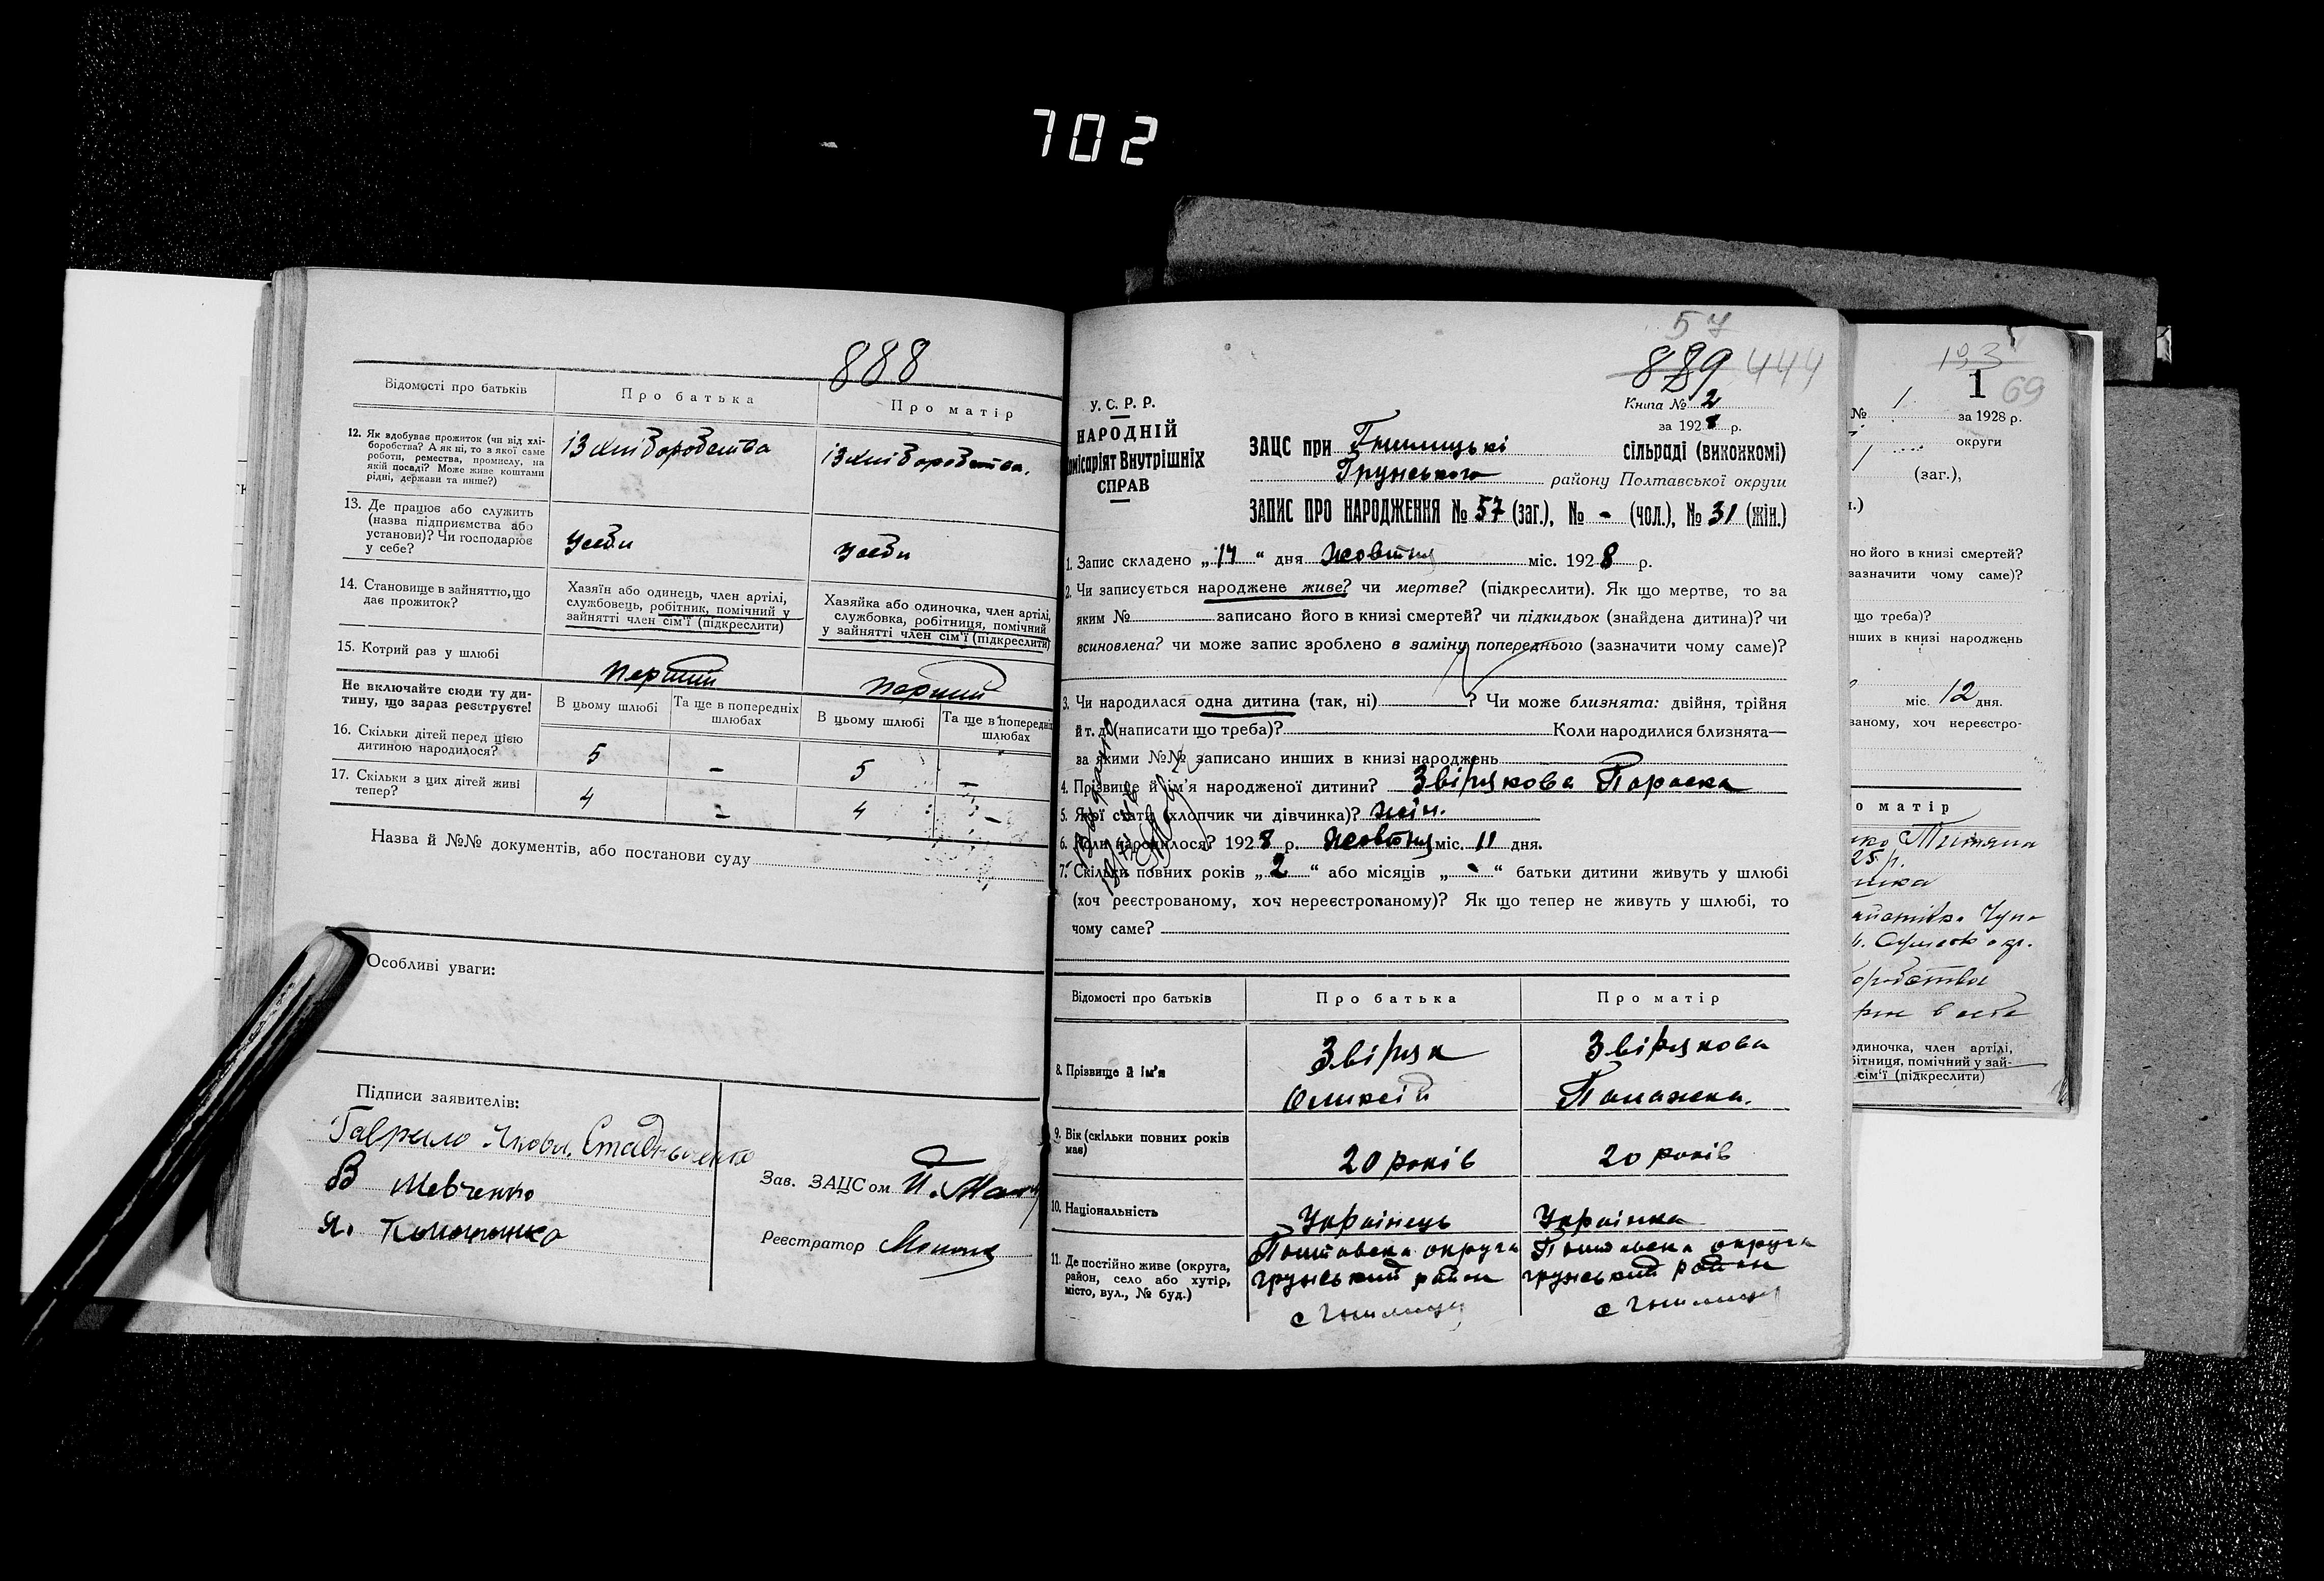 702
888
Відомості про батьків
Про батька
Про матір
12. Як здобуває прожиток (чи від хлі-
боробства? А як ні, то з якої саме
роботи, ремества, промислу, на
якій посаді? Може живе коштами
рідні, держави та инше?)
із хліборобства
із хліборобства.
13. Де працює або служить
(назва підприємства або
установи)? Чи господарює
у себе?
Усеби
Усеби
14. Становище в зайняттю, що
дає прожиток?
Хазяїн або одинець, член артілі,
службовець, робітник, помічний у
зайнятті член сім'ї (підкреслити)
Хазяйка або одиночка, член артілі,
службовка, робітниця, помічний
у зайнятті член сім'ї (підкреслити)
15. Котрий раз у шлюбі
перший
перший
Не включайте сюди ту ди-
тину, що зараз реєструєте!
В цьому шлюбі
Та ще в попередніх
шлюбах
В цьому шлюбі
Та ще в попередніх
шлюбах
16. Скільки дітей перед цією
дитиною народилося?
5
-
5
17. Скільки з цих дітей живі
тепер?
4
-
4
-
Назва й №№ документів, або постанови суду
Особливі уваги:
Підписи заявителів:
Гаврило
В Шевченко
Я.
Зав. ЗАЦСом
Реєстратор
57
889 444
Книга № 2
за 1928 р.
У. С. Р. Р.
НАРОДНІЙ
місаріят Внутрішніх
СПРАВ
ЗАЦС при Гнилицькі сільраді (виконкомі)
Грунського району Полтавської округи
ЗАПИС ПРО НАРОДЖЕННЯ № 57 (заг.), № - (чол.), № 31 (жін.)
1. Запис складено „14“ дня Жовтня міс. 1928 р.
2. Чи записується народжене живе? чи мертве? (підкреслити). Як що мертве, то за
яким № записано його в книзі смертей? чи підкидьок (знайдена дитина)? чи
всиновлена? чи може запис зроблено в заміну попереднього (зазначити чому саме)?
3. Чи народилася одна дитина (так, ні) ? Чи може близнята: двійня, трійня
й т. д. (написати що треба)? Коли народилися близнята—
за якими №№ записано инших в книзі народжень
4. Прізвище й ім'я народженої дитини? Звірякова Параска
5. Якої статі (хлопчик чи дівчинка)? жін.
6. Коли народилося? 1928 р. Жовтня міс. 11 дня.
7. Скільки повних років „2“ або місяців „-“ батьки дитини живуть у шлюбі
(хоч реєстрованому, хоч нереєстрованому)? Як що тепер не живуть у шлюбі, то
чому саме?
Відомості про батьків
Про батька
Про матір
8. Прізвище й ім'я
Звіряк
Оликсій
Звірякова
Палажка.
9. Вік (скільки повних років
має)
20 років
20 років
10. Національність
Українець
Українка
11. Де постійно живе (округа,
район, село або хутір,
місто, вул., № буд.)
Полтавска округа
грунський район
с Гнилиця
Полтавска округа
грунський район
с Гнилиця
193
1
69
№ 1 за 1928 р.
округи
1 (заг.),
но його в книзі смертей?
зазначити чому саме)?
що треба)?
нших в книзі народжень
міс. 12 дня.
ваному, хоч нереєстро-
о матір
25 р.
одиночка, член артілі,
бітниця, помічний у зай-
сім'ї (підкреслити)